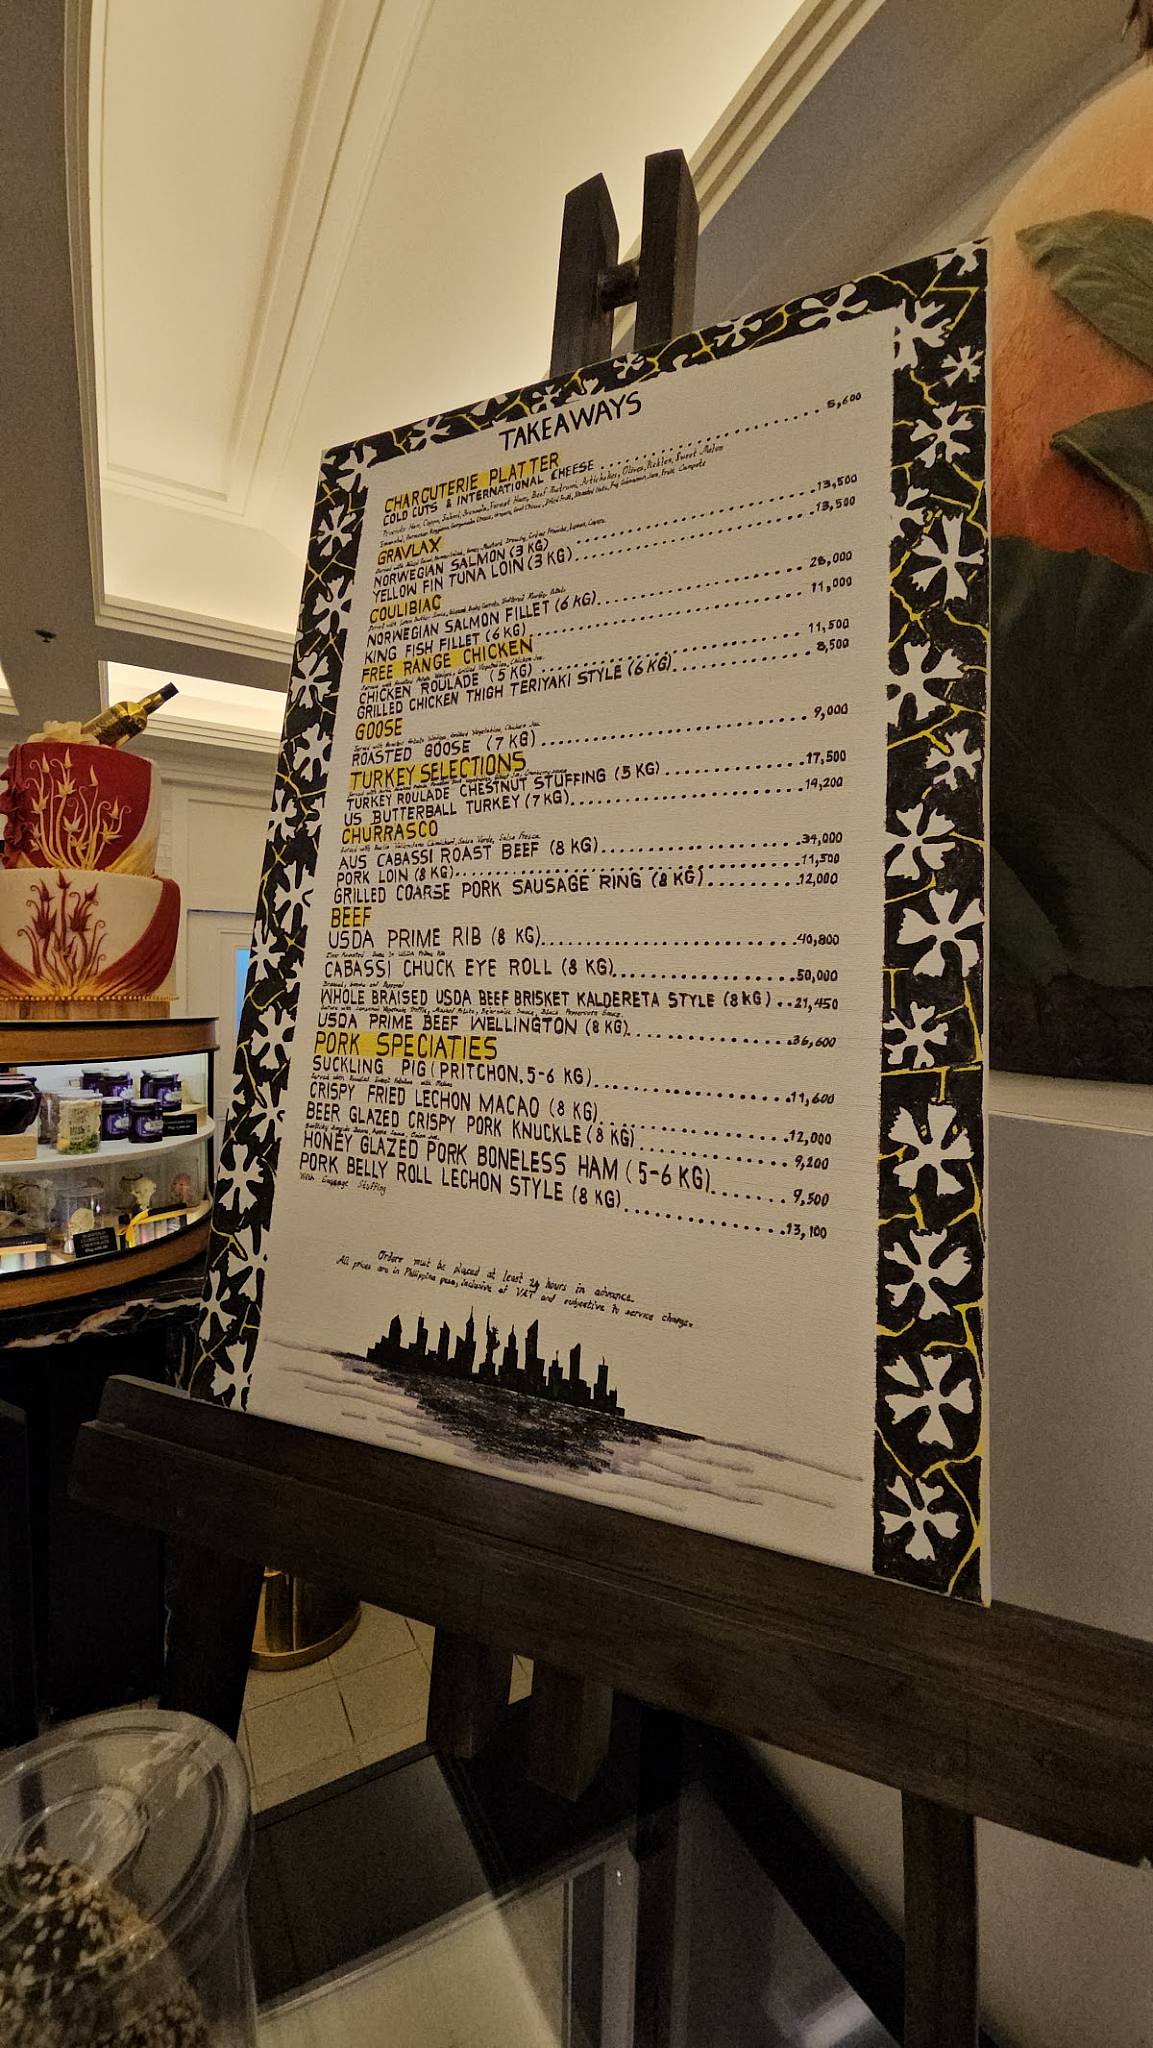 TAKEAWAYS
CHARCUTERIE PLATTER
COLD CUTS & INTERNATIONAL CHEESE ............ 5,600
GRAVLAX
NORWEGIAN SALMON (3 KG) ............ 13,500
YELLOW FIN TUNA LOIN (3 KG) ............ 13,500
COULIBIAC
NORWEGIAN SALMON FILLET (6 KG) ............ 28,000
KING FISH FILLET (6 KG) ............ 11,000
FREE RANGE CHICKEN
CHICKEN ROULADE (5 KG) ............ 11,500
GRILLED CHICKEN THIGH TERIYAKI STYLE (6 KG) ............ 8,500
GOOSE
ROASTED GOOSE (7 KG) ............ 9,000
TURKEY SELECTIONS
TURKEY ROULADE CHESTNUT STUFFING (5 KG) ............ 17,500
US BUTTERBALL TURKEY (7 KG) ............ 14,200
CHURRASCO
AUS CABASSI ROAST BEEF (8 KG) ............ 34,000
PORK LOIN (8 KG) ............ 11,500
GRILLED COARSE PORK SAUSAGE RING (8 KG) ............ 12,000
BEEF
USDA PRIME RIB (8 KG) ............ 40,800
CABASSI CHUCK EYE ROLL (8 KG) ............ 50,000
WHOLE BRAISED USDA BEEF BRISKET KALDERETA STYLE (8 KG) .. 21,450
USDA PRIME BEEF WELLINGTON (8 KG) ............ 36,600
PORK SPECIATIES
SUCKLING PIG (PRITCHON, 5-6 KG) ............ 11,600
CRISPY FRIED LECHON MACAO (8 KG) ............ 12,000
BEER GLAZED CRISPY PORK KNUCKLE (8 KG) ............ 9,200
HONEY GLAZED PORK BONELESS HAM (5-6 KG) ....... 9,500
PORK BELLY ROLL LECHON STYLE (8 KG) ............ 13,100
Orders must be placed at least 24 hours in advance.
All prices are in Philippine peso, inclusive of VAT and subjective to service charge.